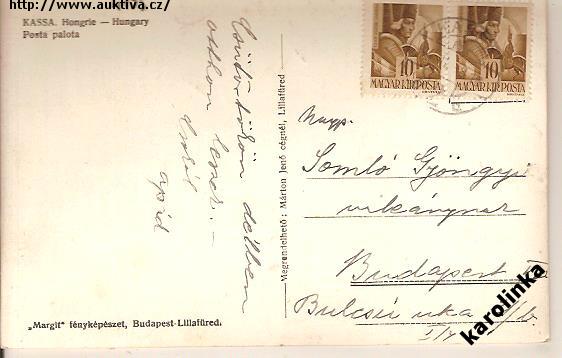 http://www.auktiva.cz/
KASSA. Hongrie — Hungary
Posta palota
Csütörtökön délben
otthon leszek. -
Csókol
apád
Megrendelhető: Márton Jenő cégnél, Lillafüred
10
MAGYAR KIR. POSTA
10
MAGYAR KIR. POSTA
Nagys.
Somló Gyöngyi
Budapest
Bulcsú utca
karolinka
„Margit" fényképészet, Budapest-Lillafüred.